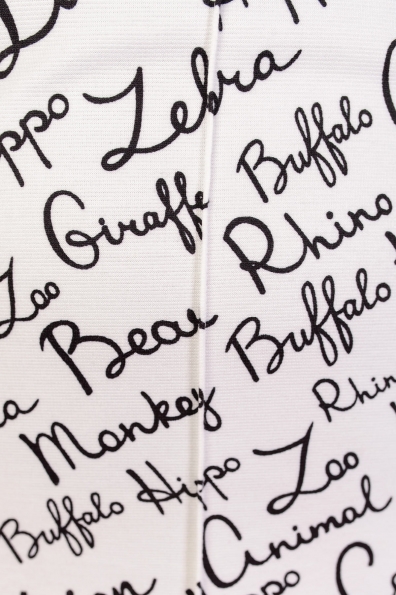 Zebra
Buffalo
Giraffe
Rhino
Zoo
Bear
Buffalo
Monkey
Zoo
Buffalo Hippo
Animal